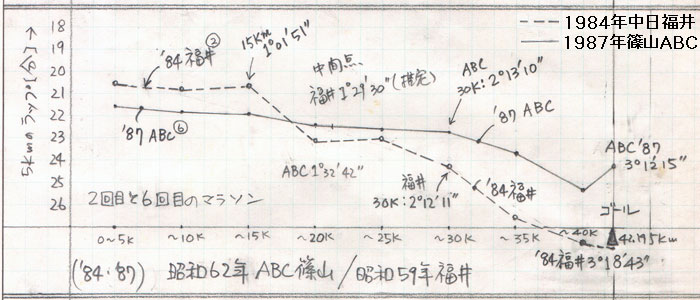 1984年中日福井
1987年篠山ABC
5Kmのラップ[分]→
18
19
20
21
22
23
24
25
26
'84福井②
15Km
1°01'51"
中間点
福井1°29'30"(推定)
ABC
30K:2°13'10"
'87 ABC⑥
'87 ABC
ABC 1°32'42"
ABC'87
3°12'15"
福井
30K:2°12'11"
'84福井
2回目と6回目のマラソン
ゴール
0~5K
~10K
~15K
~20K
~25K
~30K
~35K
~40K
42.195Km
'84福井3°18'43"
('84・'87) 昭和62年ABC篠山/昭和59年福井